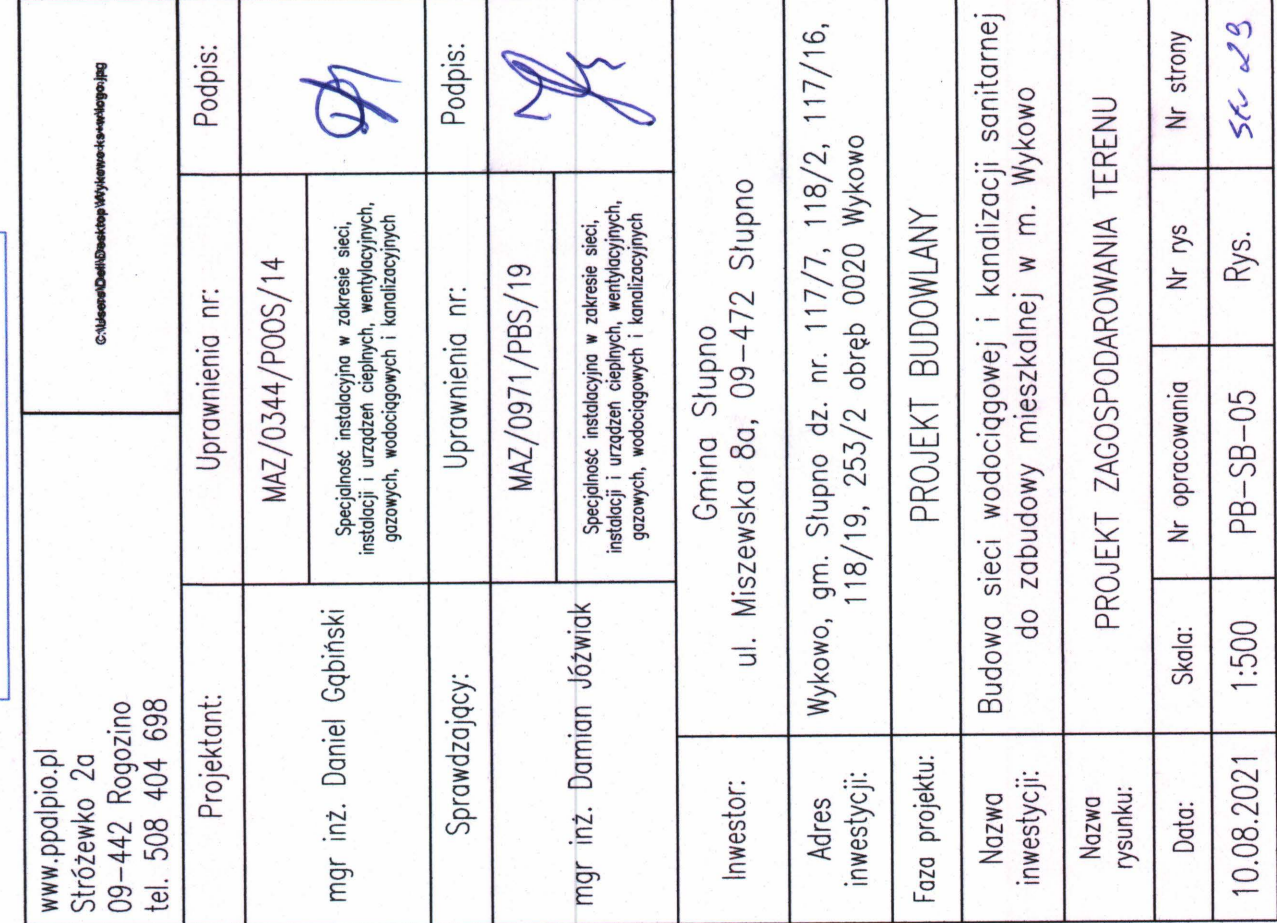 www.ppalpio.pl
Stróżewko 2a
09-442 Rogozino
tel. 508 404 698
C:\Users\Dell\Desktop\Wykowo ks+w\logo.jpg
Projektant:
Uprawnienia nr:
Podpis:
mgr inż. Daniel Gąbiński
MAZ/0344/POOS/14
Specjalność instalacyjna w zakresie sieci,
instalacji i urządzeń cieplnych, wentylacyjnych,
gazowych, wodociągowych i kanalizacyjnych
Sprawdzający:
Uprawnienia nr:
Podpis:
mgr inż. Damian Jóźwiak
MAZ/0971/PBS/19
Specjalność instalacyjna w zakresie sieci,
instalacji i urządzeń cieplnych, wentylacyjnych,
gazowych, wodociągowych i kanalizacyjnych
Inwestor:
Gmina Słupno
ul. Miszewska 8a, 09-472 Słupno
Adres
inwestycji:
Wykowo, gm. Słupno dz. nr. 117/7, 118/2, 117/16,
118/19, 253/2 obręb 0020 Wykowo
Faza projektu:
PROJEKT BUDOWLANY
Nazwa
inwestycji:
Budowa sieci wodociągowej i kanalizacji sanitarnej
do zabudowy mieszkalnej w m. Wykowo
Nazwa
rysunku:
PROJEKT ZAGOSPODAROWANIA TERENU
Data:
Skala:
Nr opracowania
Nr rys
Nr strony
10.08.2021
1:500
PB-SB-05
Rys.
29